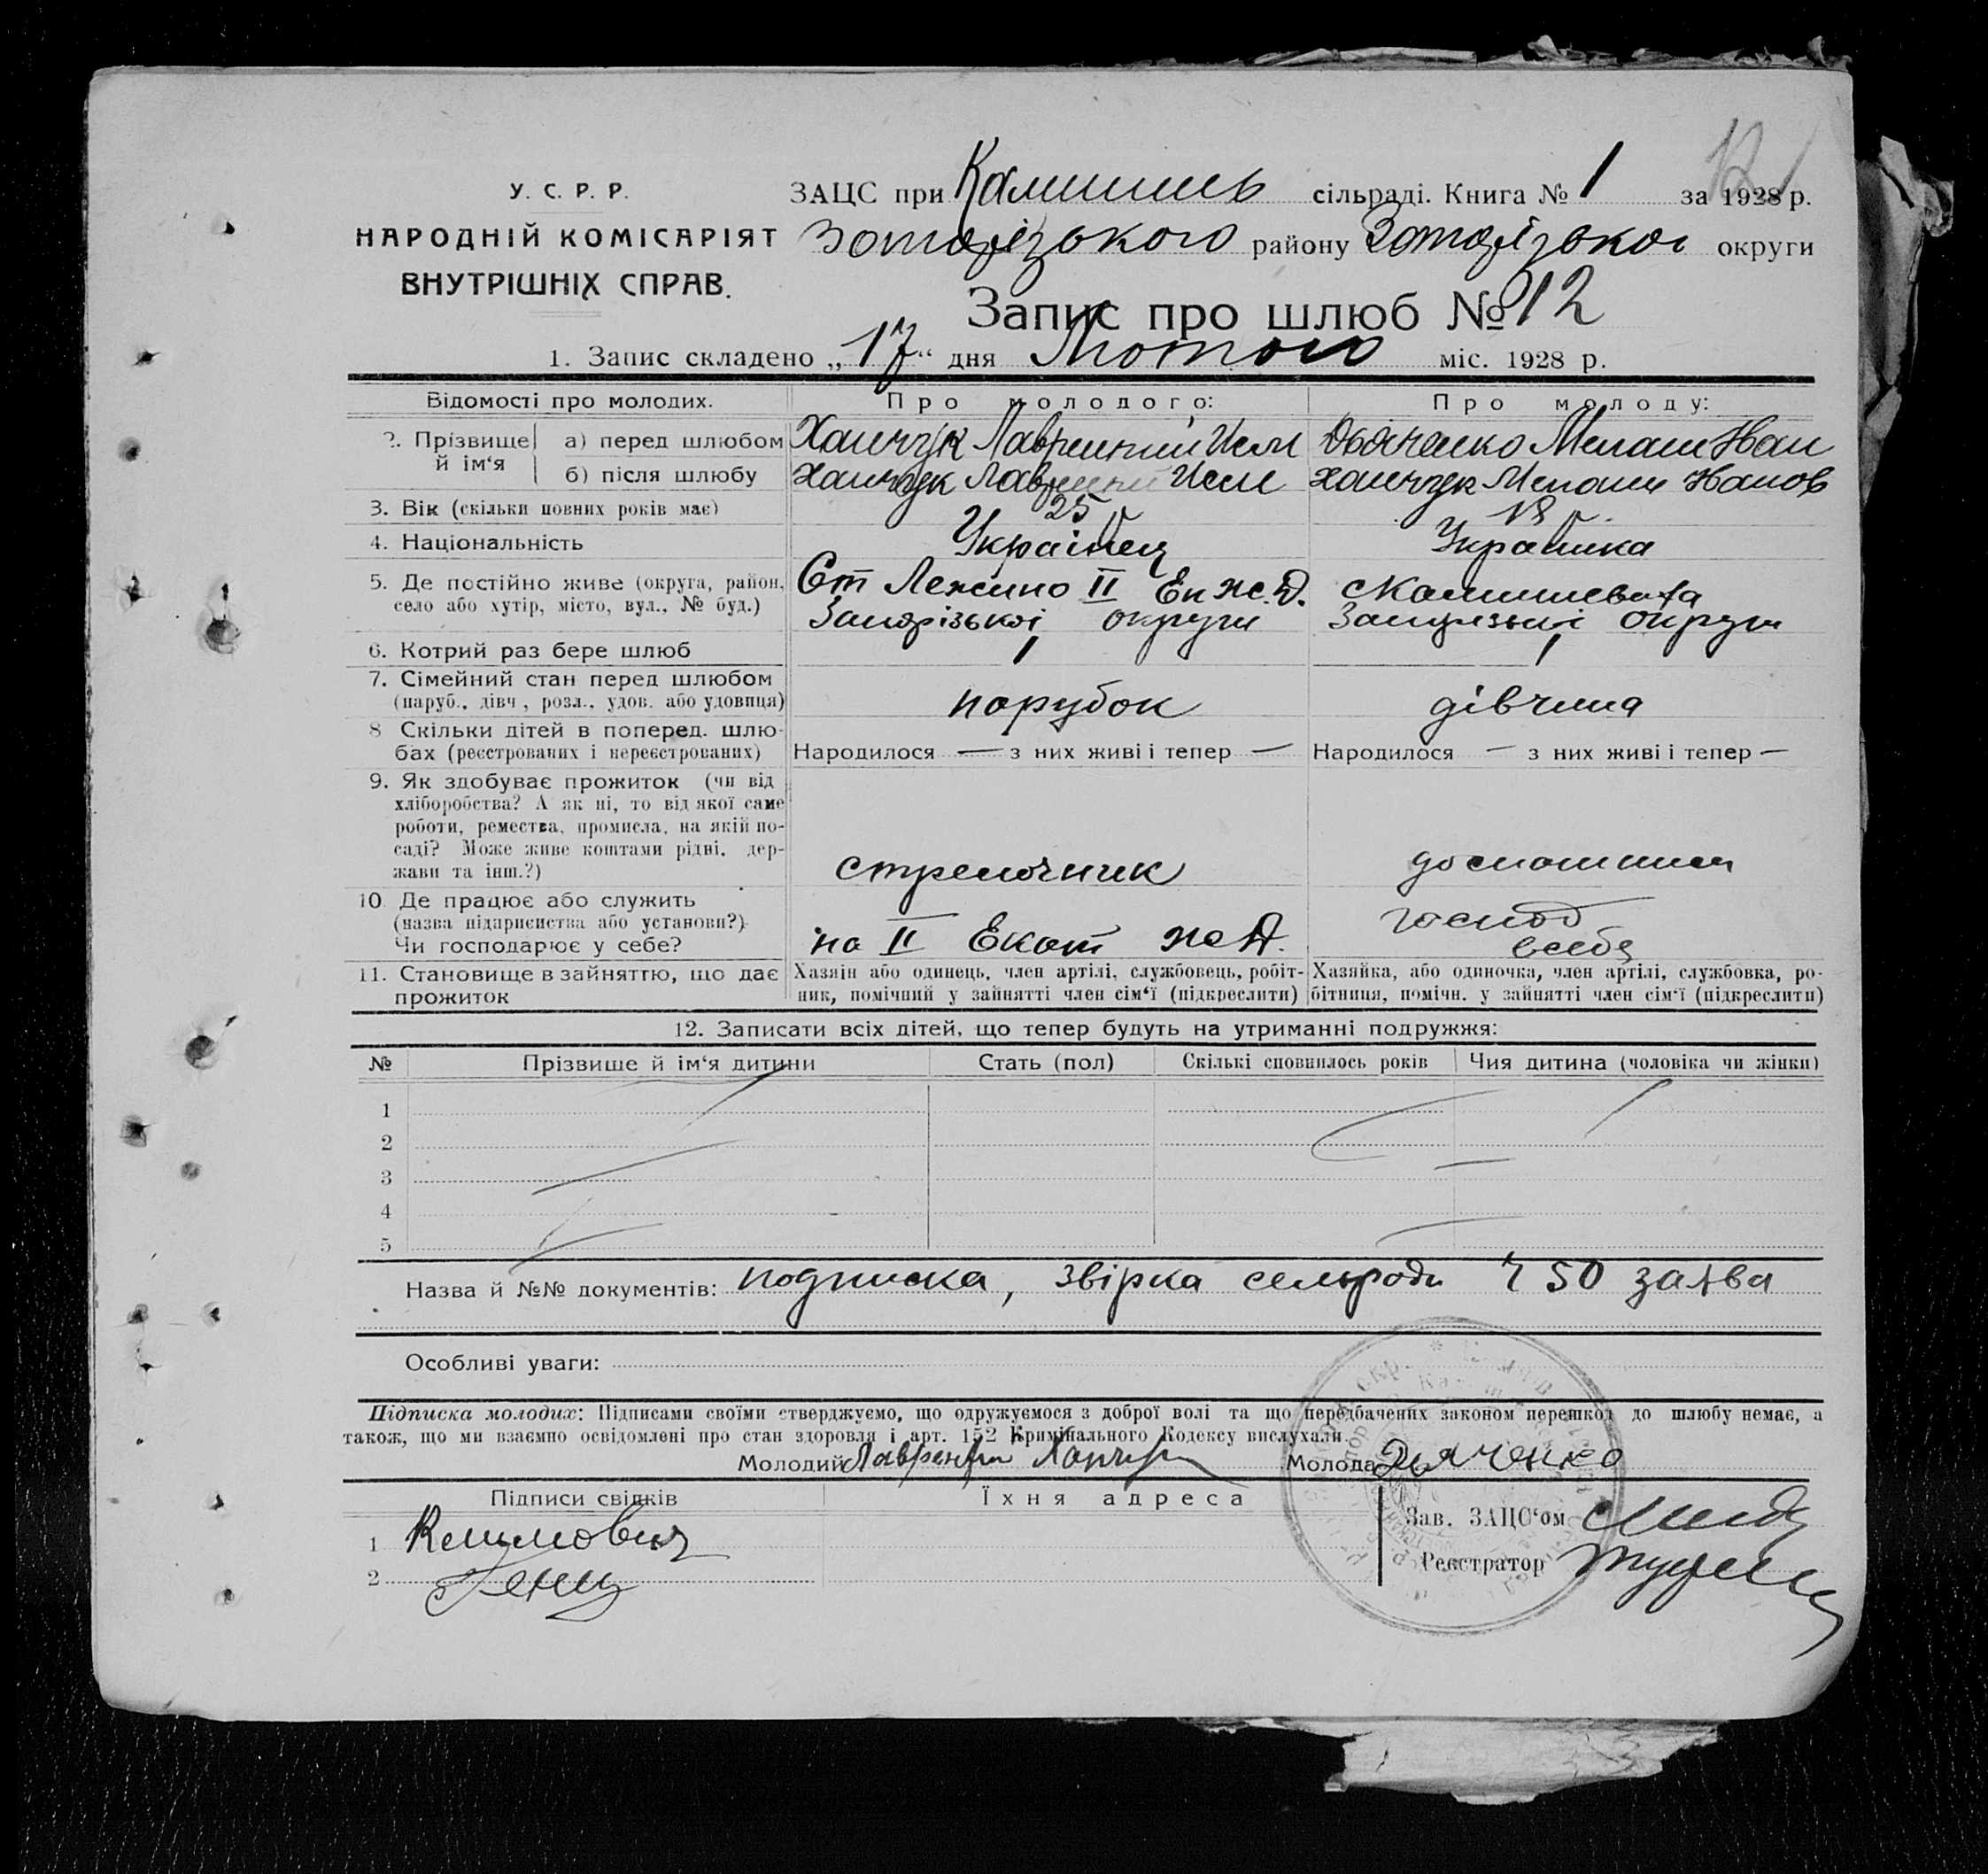 У. С. Р. Р.
НАРОДНІЙ КОМІСАРІЯТ
ВНУТРІШНІХ СПРАВ.
12
ЗАЦС при Камишев сільраді. Книга № 1 за 1928 р.
Запорізького району Запорізької округи
Запис про шлюб № 12
1. Запис складено „17“ дня Лютого міс. 1928 р.
Відомості про молодих. Про молодого: Про молоду:
2. Прізвище й ім‘я
а) перед шлюбом Ханчук Лаврентий Дьяченко Мелан Иван
б) після шлюбу Ханчук Лаврентий Ханчук Мелани Иванов
3. Вік (скільки повних років має) 25 18
4. Національність Українец Українка
5. Де постійно живе (округа, район, Ст II Ек ж.д. с Камишеваха
село або хутір, місто, вул., № буд.) Запорізької округи Запорізької округи
6. Котрий раз бере шлюб 1 1
7. Сімейний стан перед шлюбом
(паруб., дівч., розл., удов. або удовиця) парубок дівчина
8 Скільки дітей в поперед. шлю-
бах (реєстрованих і нереєстрованих) Народилося — з них живі і тепер — Народилося — з них живі і тепер —
9. Як здобуває прожиток (чи від
хліборобства? А як ні, то від якої саме
роботи, ремества, промисла, на якій по-
саді? Може живе коштами рідні, дер-
жави та інш.?) стрелочник
10. Де працює або служить
(назва підприємства або установи?) господ
Чи господарює у себе? на II Екат ж Д. всебя
11. Становище в зайняттю, що дає Хазяін або одинець, член артілі, службовець, робіт- Хазяйка, або одиночка, член артілі, службовка, ро-
прожиток ник, помічний у зайнятті член сім‘ї (підкреслити) бітниця, помічн. у зайнятті член сім‘ї (підкреслити)
12. Записати всіх дітей, що тепер будуть на утриманні подружжя:
№ Прізвише й ім‘я дитини Стать (пол) Скількі сповнилось років Чия дитина (чоловіка чи жінки)
1
2
3
4
5
Назва й №№ документів: подписка, звірка сельради ч 50 заява
Особливі уваги:
Підписка молодих: Підписами своїми стверджуємо, що одружуємося з доброї волі та що передбачених законом перешкод до шлюбу немає, а
також, що ми взаємно освідомлені про стан здоровля і арт. 152 Кримінального Кодексу вислухали.
Молодий Лаврентий Ханчук Молода Дьяченко
Підписи свідків Їхня адреса
Зав. ЗАЦС‘ом
1
Реєстратор
2